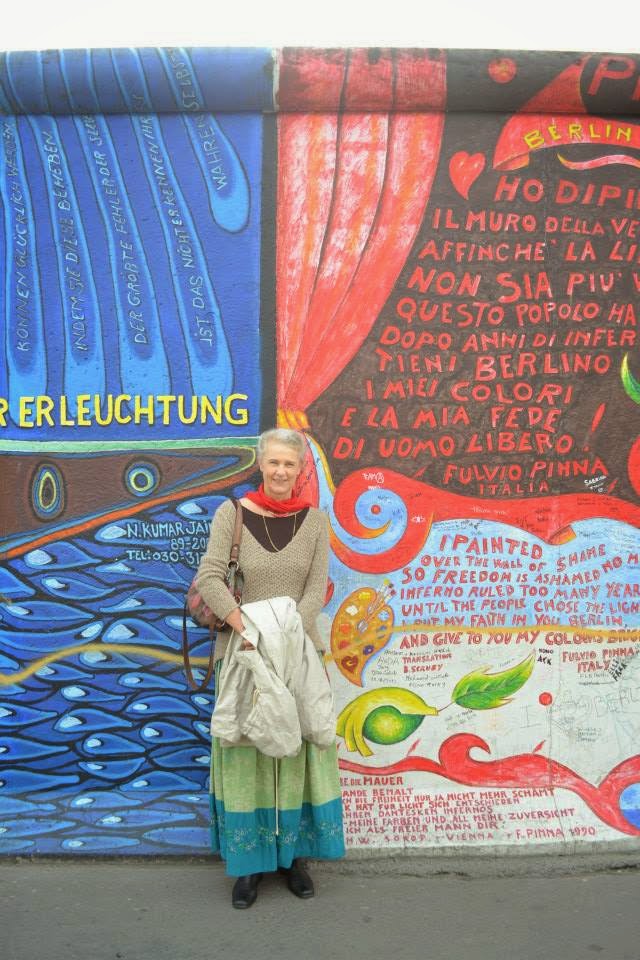 KÖNNEN GLÜCKLICH WERDEN
INDEM SIE DIESE BEHEBEN
DER GRÖßTE FEHLER DER
IST, DAS NICHT ERKENNEN IHR
WAHREN SELBST
R ERLEUCHTUNG
N. KUMAR JAI
89-20
TEL: 030-31
P
BERLIN
HO DIPI
IL MURO DELLA VE
AFFINCHE` LA LI
NON SIA PIU`
QUESTO POPOLO HA
DOPO ANNI DI INFER
TIENI BERLINO
I MIEI COLORI
E LA MIA FEDE
DI UOMO LIBERO!
FULVIO PINNA
ITALIA
I PAINTED
OVER THE WALL OF SHAME
SO FREEDOM IS ASHAMED NO M
INFERNO RULED TOO MANY YEAR
UNTIL THE PEOPLE CHOSE THE LIGH
PUT MY FAITH IN YOU BERLIN,
AND GIVE TO YOU MY COLOURS
TRANSLATION
FULVIO PINNA
ITALY
RE DIE MAUER
ANDE BEMALT
DIE FREIHEIT NUR JA NICHT MEHR SCHÄMT
K HAT FÜR LICHT SICH ENTSCHIEDEN
AHREN DANTESKEN INFERNOS
-MEINE FARBEN UND ALL MEINE ZUVERSICHT
ICH ALS FREIER MANN DIR!
H.W. SOKOP - VIENNA - F. PINNA 1990